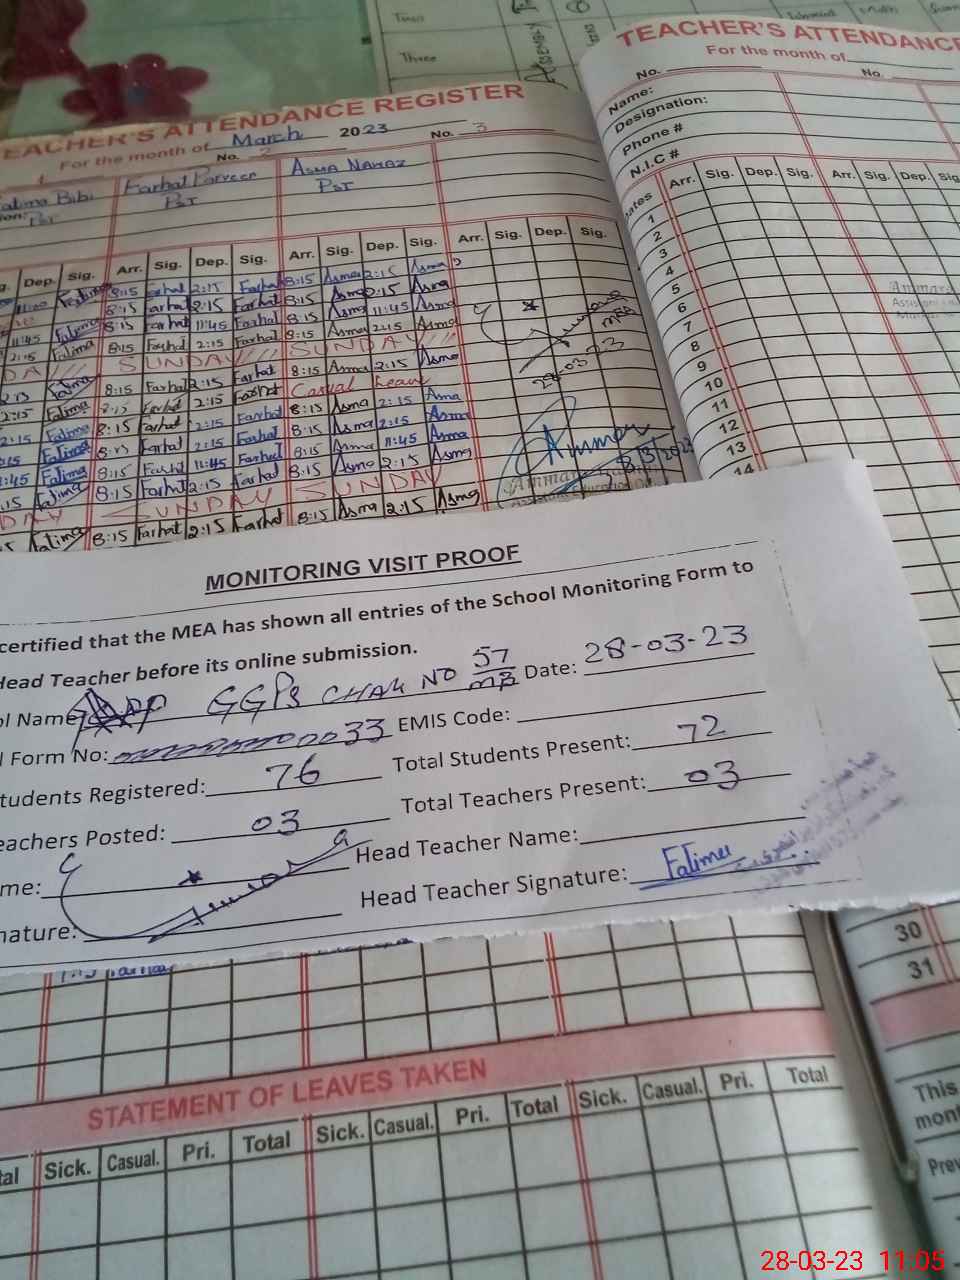 Two
Three
TEACHER'S ATTENDANCE
For the month of
No. No.
Name:
Designation:
Phone #
N.I.C #
Arr. Sig. Dep. Sig. Arr. Sig. Dep. Sig.
1
2
3
4
5
6
7
8
9
10
11
12
13
14
EACHER'S ATTENDANCE REGISTER
For the month of March 2023 No. 3
No. 2
Bibi Farhat Parveen Asma Nawaz
PST PST PST
Dep. Sig. Arr. Sig. Dep. Sig. Arr. Sig. Dep. Sig. Arr. Sig. Dep. Sig.
Fatima 8:15 Farhat 2:15 Farhat 8:15 Asma 2:15 Asma
8:15 Farhat 2:15 Farhat 8:15 Asma 2:15 Asma
11:45 Fatima 8:15 Farhat 11:45 Farhat 8:15 Asma 11:45 Asma
2:15 Fatima 8:15 Farhat 2:15 Farhat 8:15 Asma 2:15 Asma
DAY SUNDAY SUNDAY
2:15 Fatima 8:15 Farhat 2:15 Farhat 8:15 Asma 2:15 Asma
2:15 Fatima 8:15 Farhat 2:15 Farhat Casual Leave
2:15 Fatima 8:15 Farhat 2:15 Farhat 8:15 Asma 2:15 Asma
Fatima 8:15 Farhat 2:15 Farhat 8:15 Asma 2:15 Asma
Fatima 8:15 Farhat 11:45 Farhat 8:15 Asma 11:45 Asma
Fatima 8:15 Farhat 2:15 Farhat 8:15 Asma 2:15 Asma
DAY SUNDAY SUNDAY
Fatima 8:15 Farhat 2:15 Farhat 8:15 Asma 2:15 Asma
28-03-23
MONITORING VISIT PROOF
certified that the MEA has shown all entries of the School Monitoring Form to
Head Teacher before its online submission.
Name GGPS CHAK NO 57/MB Date: 28-03-23
Form No: 33 EMIS Code:
tudents Registered: 76 Total Students Present: 72
eachers Posted: 03 Total Teachers Present: 03
me: Head Teacher Name:
nature: Head Teacher Signature: Fatima
30
31
STATEMENT OF LEAVES TAKEN
tal Sick. Casual. Pri. Total Sick. Casual. Pri. Total Sick. Casual. Pri. Total
This
mont
Prev
28-03-23 11:05